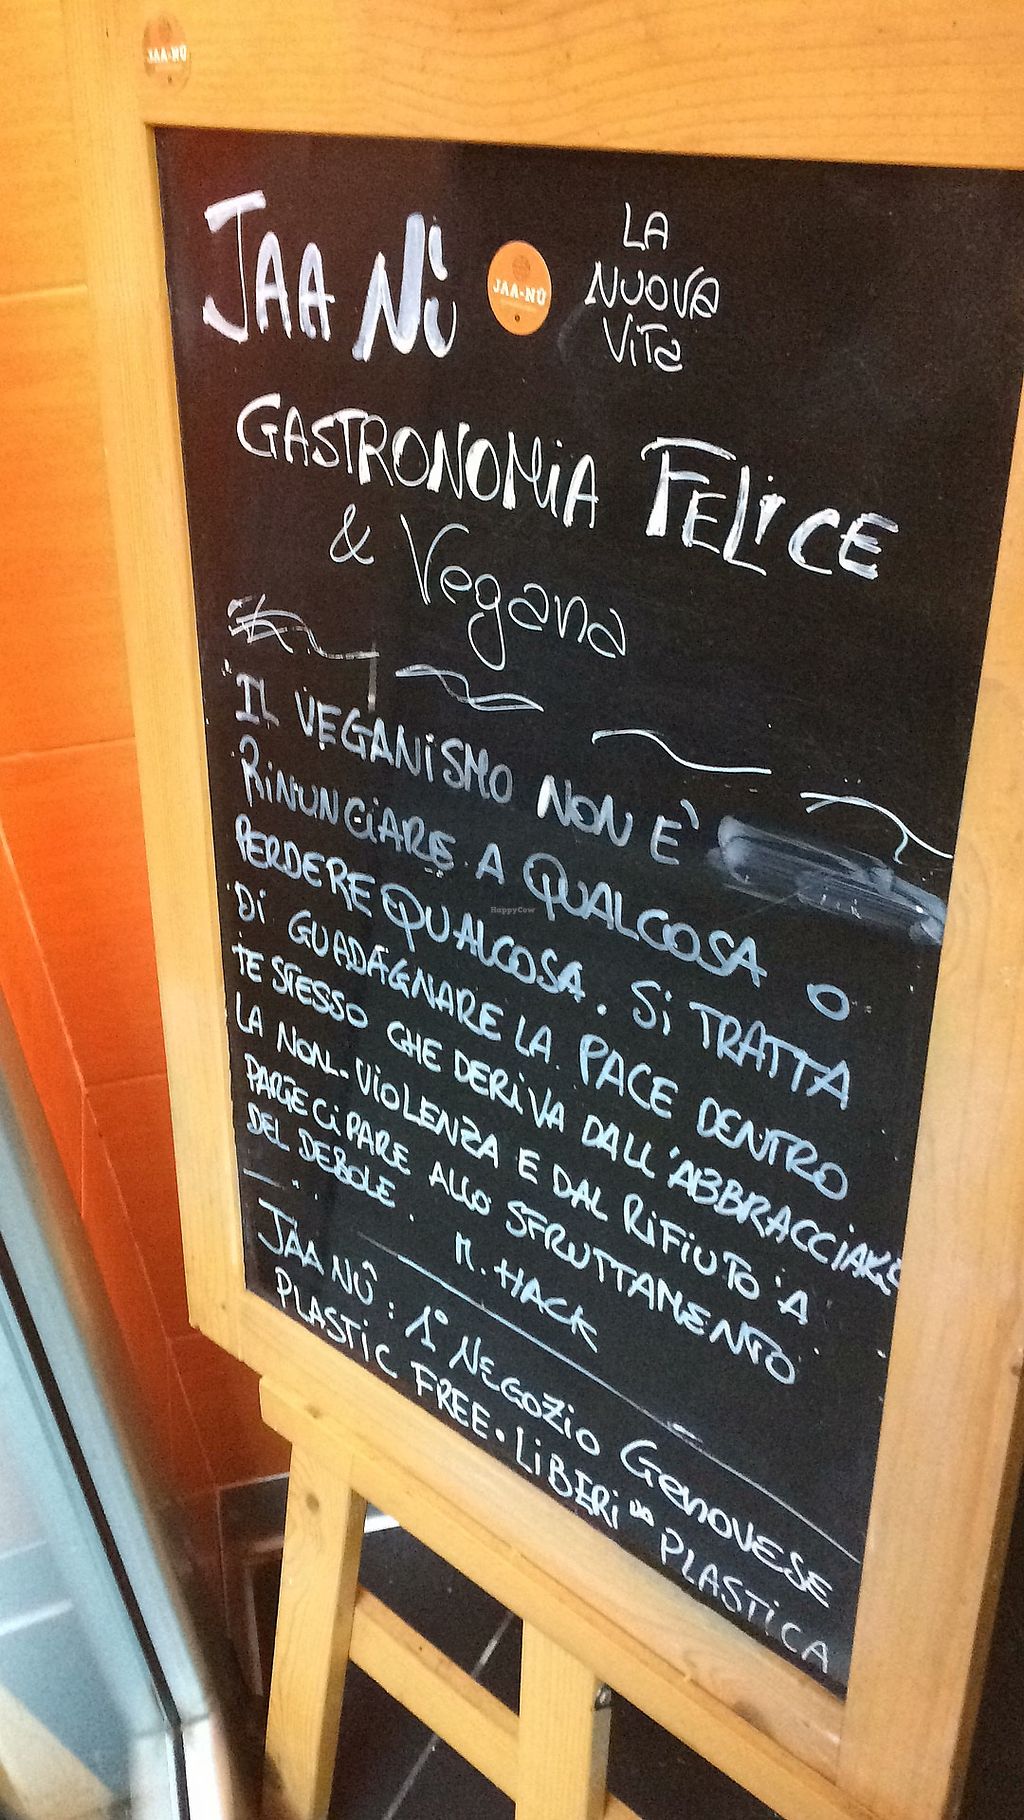 JAA-NÛ
JAA NÛ
JAA-NÛ
LA
NUOVA
VITA
GASTRONOMIA FELICE
& Vegana
IL VEGANISMO NON È
RINUNCIARE A QUALCOSA O
PERDERE QUALCOSA. Si TRATTA
Di GUADAGNARE LA PACE DENTRO
TE STESSO CHE DERIVA DALL'ABBRACCIARE
LA NON-VIOLENZA E DAL RIFIUTO A
PARTECIPARE ALLO SFRUTTAMENTO
DEL DEBOLE. M. HACK
JAA NÛ: 1° NEGOZIO GENOVESE
PLASTIC FREE. LIBERI DA PLASTICA
HappyCow